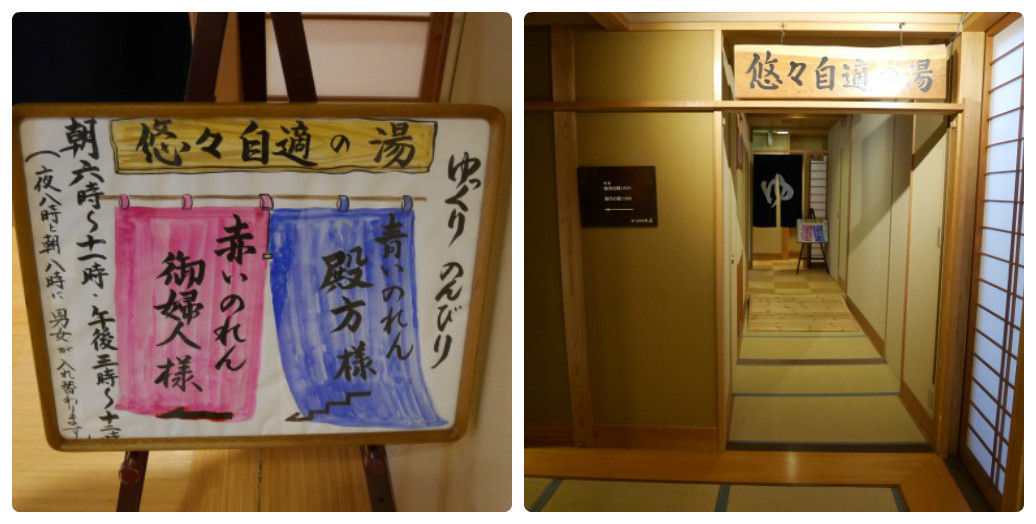 悠々自適の湯
ゆっくり のんびり
青いのれん
殿方様
赤いのれん
御婦人様
朝六時〜十一時・午後三時〜十二時
(夜八時と朝八時に男女が入れ替わります)
悠々自適の湯
ゆ